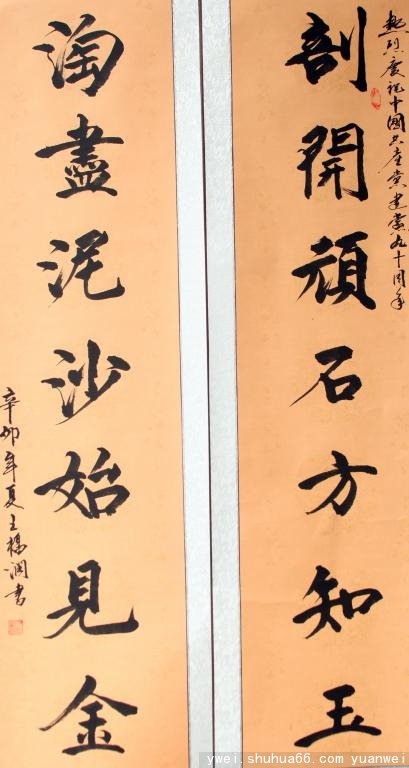 热烈庆祝中國共產党建党九十周年
剖開頑石方知玉
淘盡泥沙始見金
辛卯年夏王楊润書
ywei.shuhua66.com yuanwei